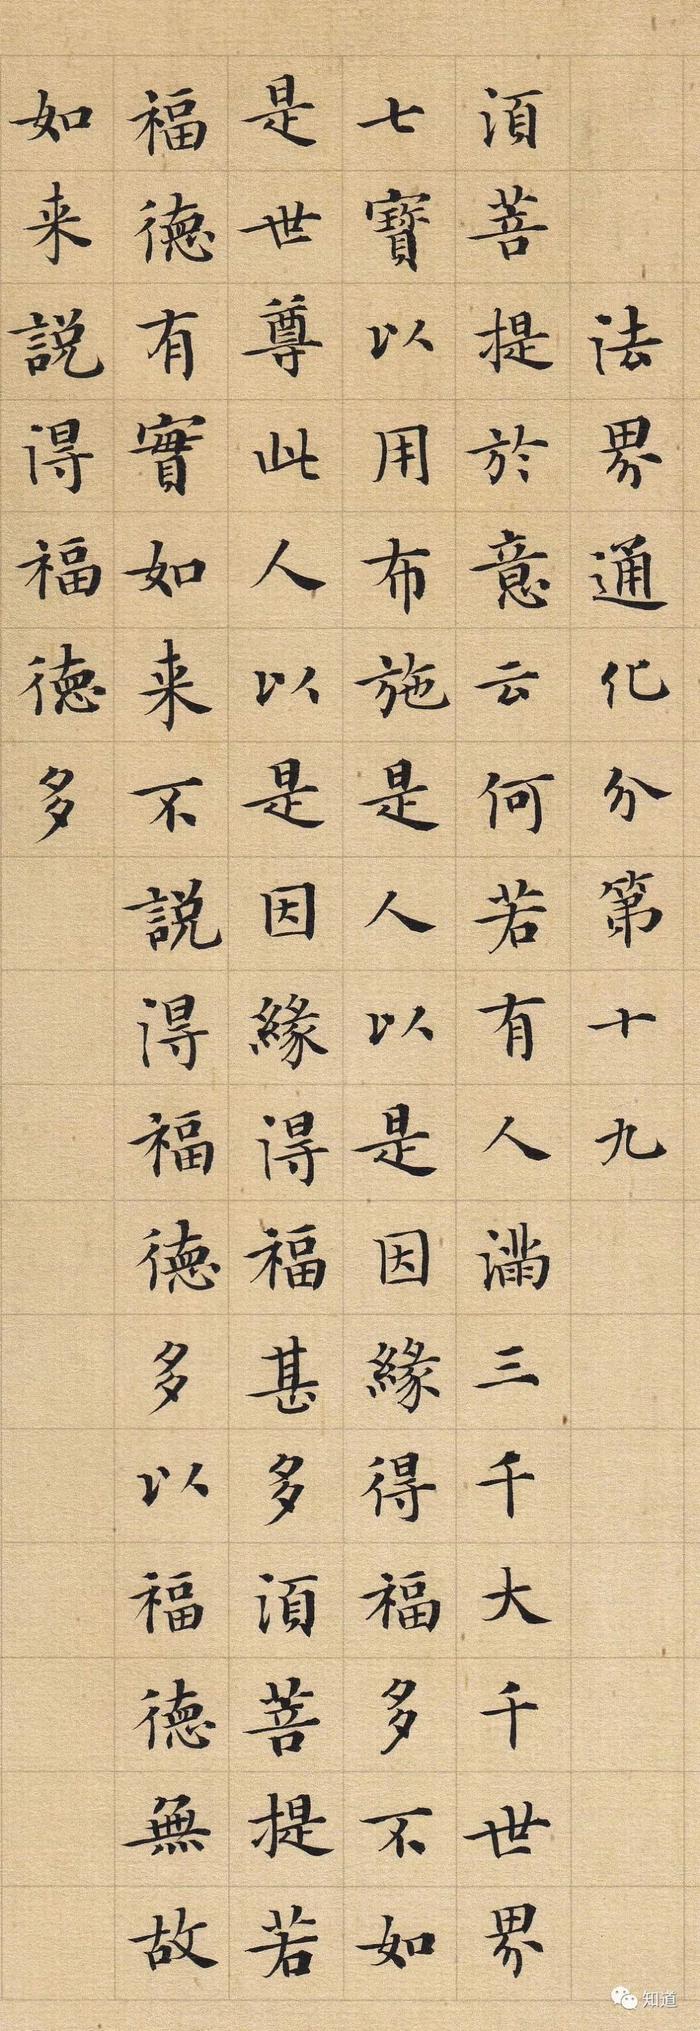 法界通化分第十九
湏菩提於意云何若有人满三千大千世界
七寶以用布施是人以是因緣得福多不如
是世尊此人以是因緣淂福甚多湏菩提若
福德有實如来不説淂福德多以福德無故
如来説淂福德多
知道